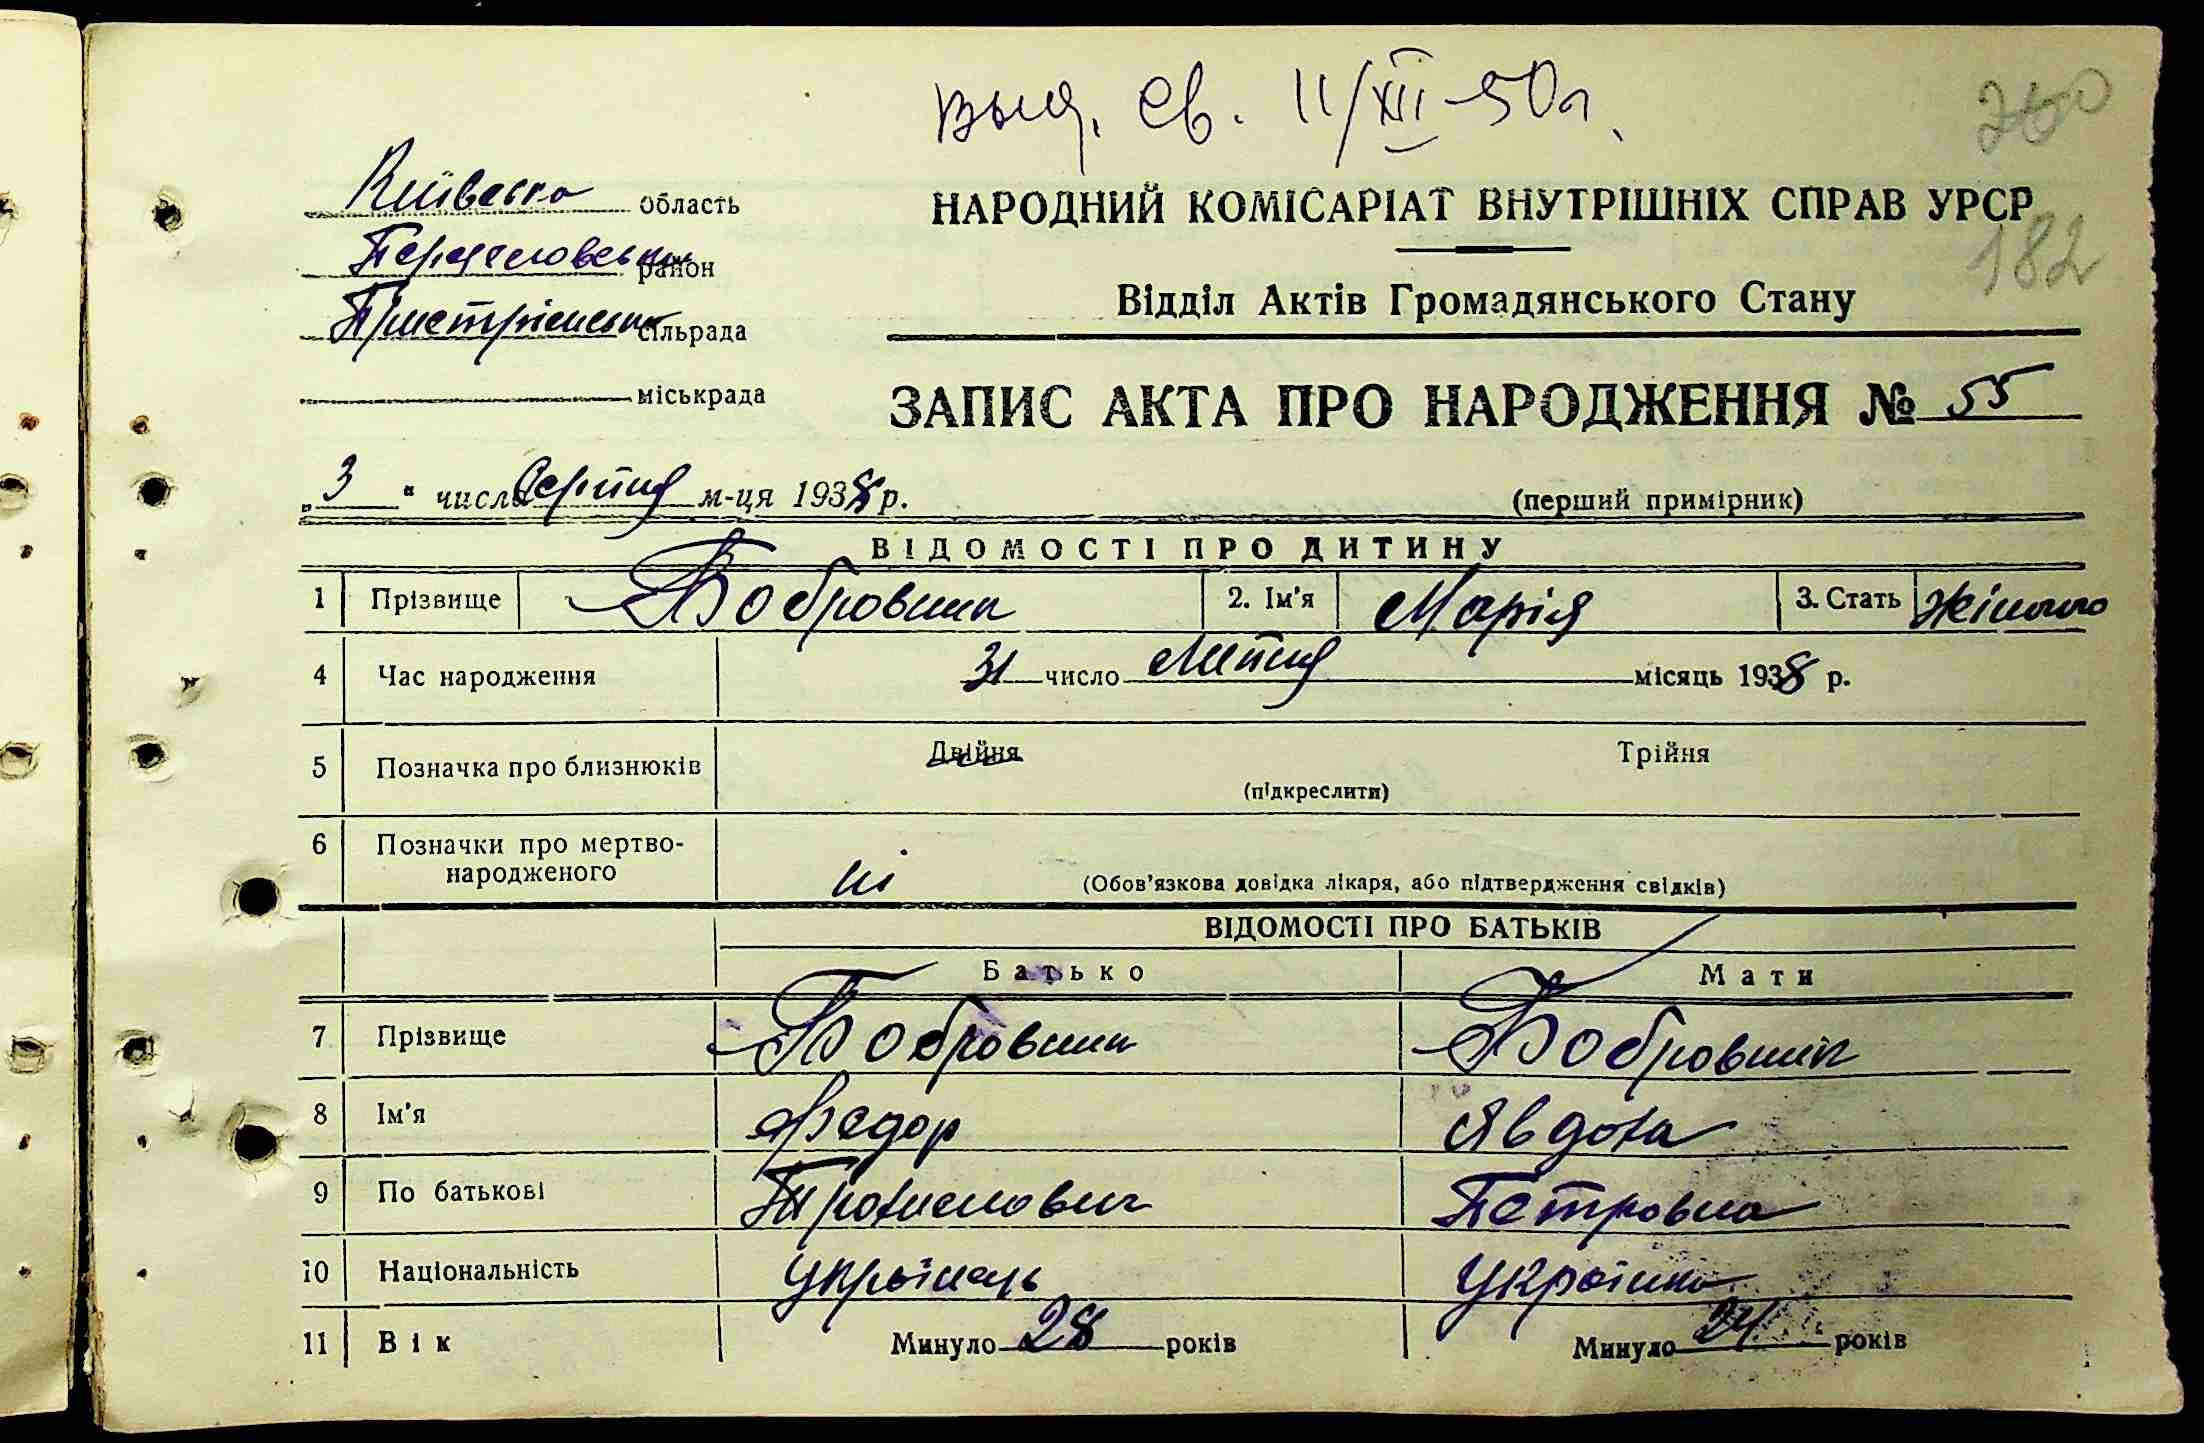 выд. св. 11/XII-50г.
260
Київська область
Переяславський район
Пристромська сільрада
міськрада
182
НАРОДНИЙ КОМІСАРІАТ ВНУТРІШНІХ СПРАВ УРСР
Відділ Актів Громадянського Стану
ЗАПИС АКТА ПРО НАРОДЖЕННЯ № 55
„3“ числа Серпня м-ця 1938 р.
(перший примірник)
ВІДОМОСТІ ПРО ДИТИНУ
1 Прізвище Бобровник 2. Ім'я Марія 3. Стать жіноча
4 Час народження 31 число Липня місяць 1938 р.
5 Позначка про близнюків Двійня Трійня
(підкреслити)
6 Позначки про мертвонародженого ні (Обов'язкова довідка лікаря, або підтвердження свідків)
ВІДОМОСТІ ПРО БАТЬКІВ
Батько Мати
7 Прізвище Бобровник Бобровник
8 Ім'я Федор Явдоха
9 По батькові Трохимович Петровна
10 Національність Українець Українка
11 Вік Минуло 28 років Минуло 24 років